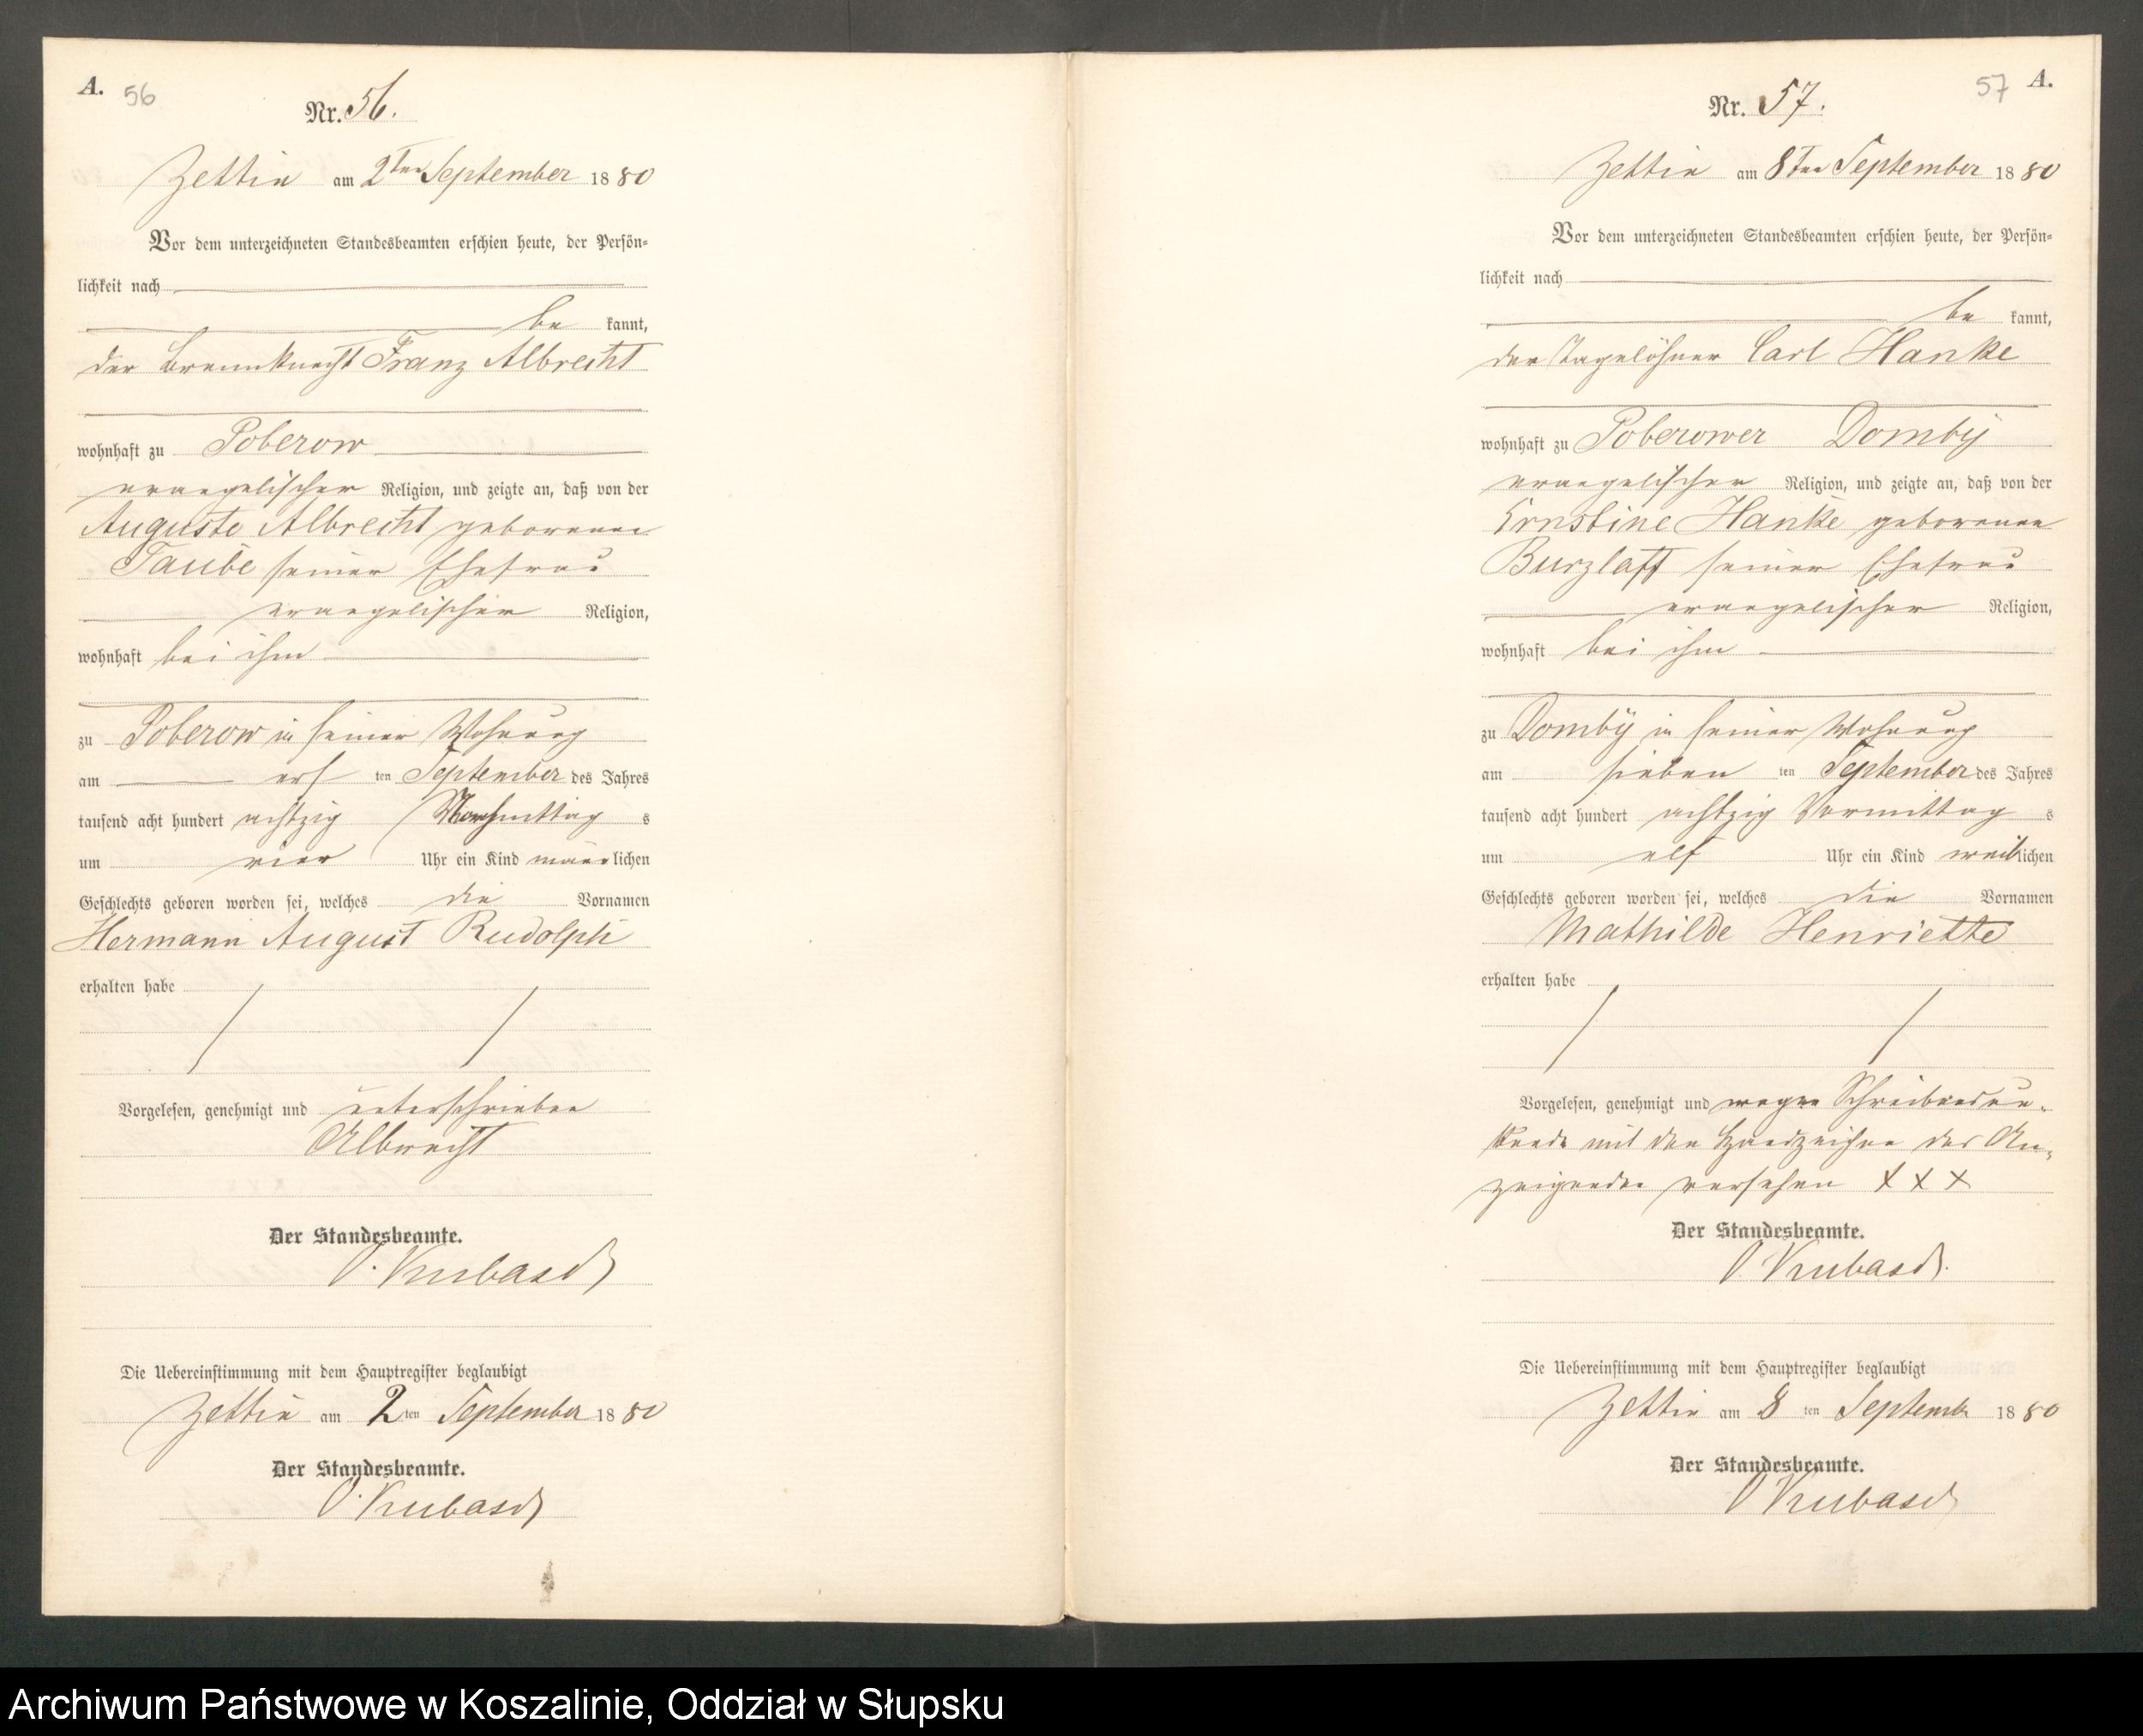 A. 56
Nr. 56.
Zettin am 2ten September 1880
Vor dem unterzeichneten Standesbeamten erschien heute, der Persön-
lichkeit nach
be kannt,
der Brennknecht Franz Albrecht
wohnhaft zu Poberow
evangelischer Religion, und zeigte an, daß von der
Auguste Albrecht geborenen
Taube seiner Ehefrau
evangelischer Religion,
wohnhaft bei ihm
zu Poberow in seiner Wohnung
am ersten September des Jahres
tausend acht hundert achtzig Nachmittags
um vier Uhr ein Kind männlichen
Geschlechts geboren worden sei, welches die Vornamen
Hermann August Rudolph
erhalten habe
Vorgelesen, genehmigt und unterschrieben
Albrecht
Der Standesbeamte.
O. Kubasch
Die Uebereinstimmung mit dem Hauptregister beglaubigt
Zettin am 2ten September 1880
Der Standesbeamte.
O. Kubasch
57 A.
Nr. 57.
Zettin am 8ten September 1880
Vor dem unterzeichneten Standesbeamten erschien heute, der Persön-
lichkeit nach
be kannt,
der Tagelöhner Carl Hanke
wohnhaft zu Poberower Domby
evangelischer Religion, und zeigte an, daß von der
Ernstine Hanke geborenen
Burzlaff seiner Ehefrau
evangelischer Religion,
wohnhaft bei ihm
zu Domby in seiner Wohnung
am siebenten September des Jahres
tausend acht hundert achtzig Vormittags
um elf Uhr ein Kind weiblichen
Geschlechts geboren worden sei, welches die Vornamen
Mathilde Henriette
erhalten habe
Vorgelesen, genehmigt und wegen Schreibensun-
kunde mit den Handzeichen des An-
zeigenden versehen X X X
Der Standesbeamte.
O. Kubasch.
Die Uebereinstimmung mit dem Hauptregister beglaubigt
Zettin am 8ten Septembr 1880
Der Standesbeamte.
O Kubasch
Archiwum Państwowe w Koszalinie, Oddział w Słupsku